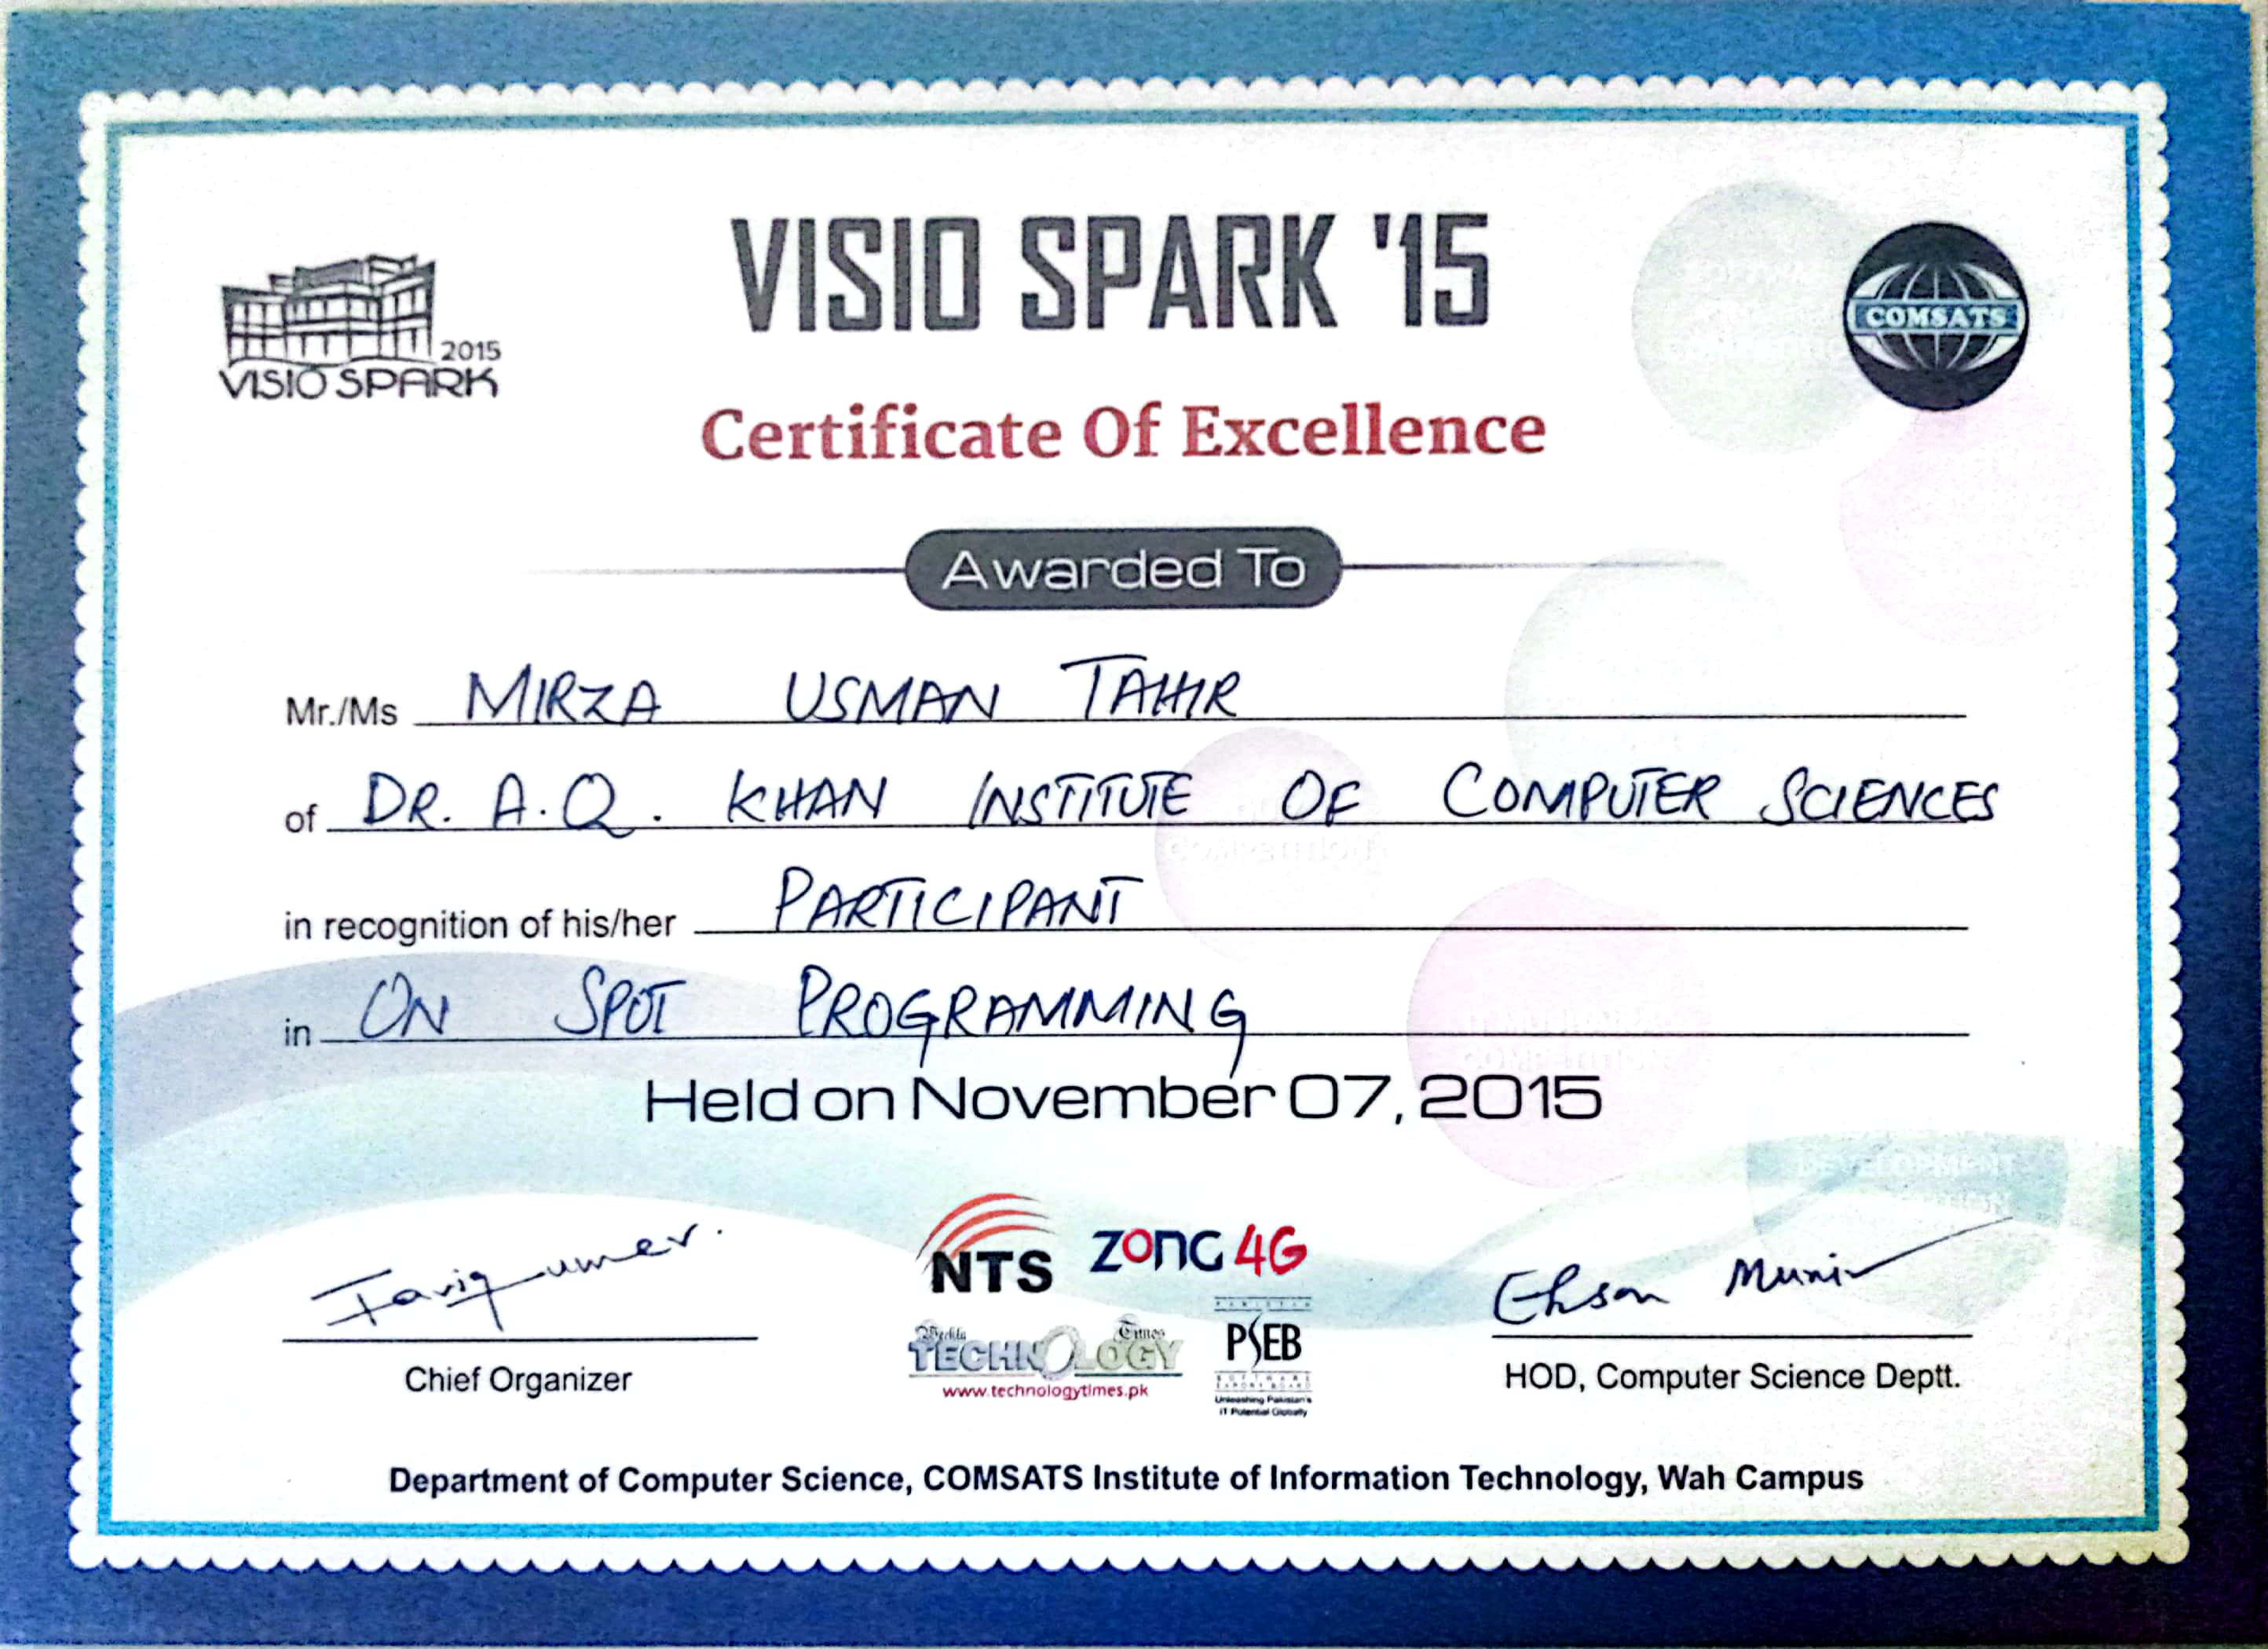 VISIO SPARK '15
2015
VISIO SPARK
COMSATS
Certificate Of Excellence
Awarded To
Mr./Ms MIRZA USMAN TAHIR
of DR. A.Q. KHAN INSTITUTE OF COMPUTER SCIENCES
in recognition of his/her PARTICIPANT
in ON SPOT PROGRAMMING
Held on November 07, 2015
Tariq umer.
Chief Organizer
NTS
ZONG 4G
Weekla Times
TECHNOLOGY
www.technologytimes.pk
PAKISTAN
PSEB
SOFTWARE
EXPORT BOARD
Unleashing Pakistan's
IT Potential Globally
Ehsan Munir
HOD, Computer Science Deptt.
Department of Computer Science, COMSATS Institute of Information Technology, Wah Campus